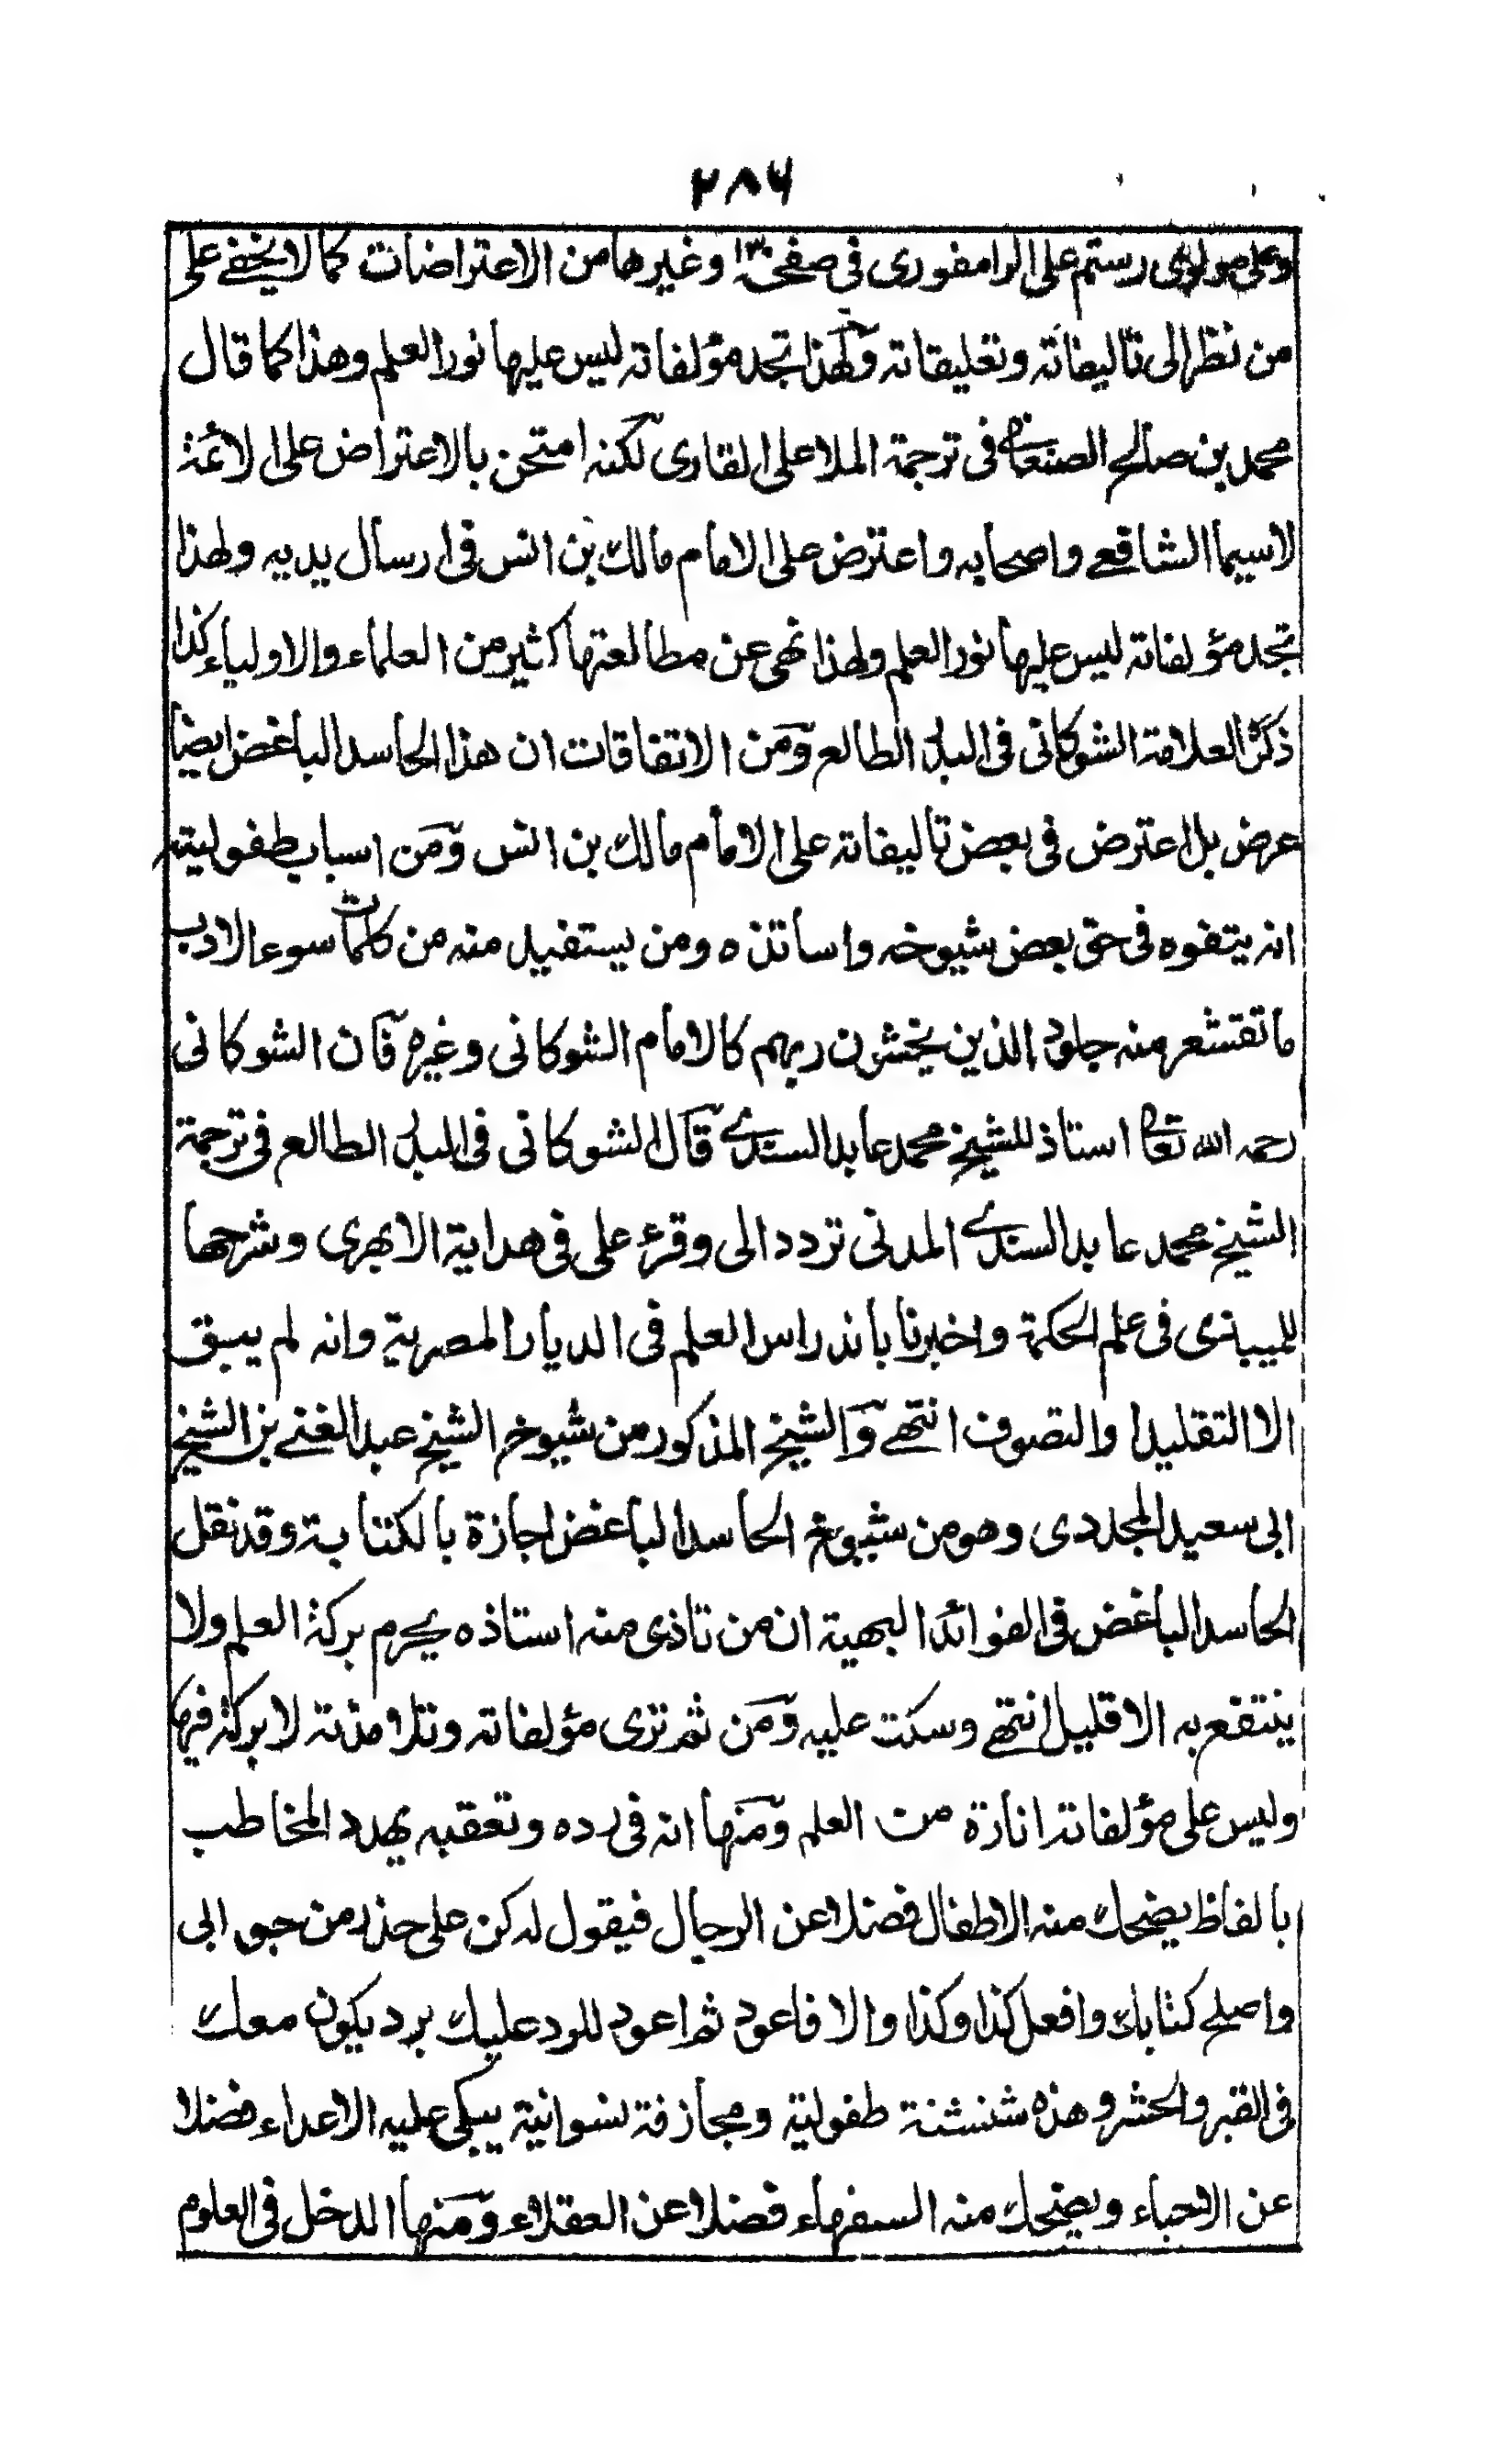 ٢٨٦
وعلى مولوى رستم على الرامفورى فى صفحة ١٣ وغيرها من الاعتراضات كما لا يخفى على
من نظر الى تاليفاته وتعليقاته ولهذا تجد مؤلفاته ليس عليها نور العلم وهذا كما قال
محمد بن صالح الصنعانى فى ترجمة الملا على القارى لكنه امتحن بالاعتراض على الائمة
لاسيما الشافعے واصحابه واعترض على الامام مالك بن انس فى ارسال يديه ولهذا
تجد مؤلفاته ليس عليها نور العلم ولهذا نهى عن مطالعتها كثير من العلماء والاولياء كذا
ذكره العلامة الشوكانى فى البدر الطالع ومن الاتفاقات ان هذا الحاسد الباغض ايضا
عرض بل اعترض فى بعض تاليفاته على الامام مالك بن انس ومن اسباب طفوليته
انه يتفوه فى حق بعض شيوخه واساتذه ومن يستفيد منه من كلمات سوء الادب
ما تقشعر منه جلود الذين يخشون ربهم كالامام الشوكانى وغيره فان الشوكانى
رحمه الله تعالى استاذ للشيخ محمد عابد السندے قال الشوكانى فى البدر الطالع فى ترجمة
الشيخ محمد عابد السندے المدنى تردد الى وقرء على فى هداية الابهرى وشرحها
للميبذى فى علم الحكمة واخبرنا باندراس العلم فى الديار المصرية وانه لم يبق
الا التقليد والتصوف انتهے والشيخ المذكور من شيوخ الشيخ عبد الغنے بن الشيخ
ابى سعيد المجددى وهو من شيوخ الحاسد الباغض اجازة بالكتابة وقد نقل
الحاسد الباغض فى الفوائد البهية ان من تاذى منه استاذه يحرم بركة العلم ولا
ينتفع به الا قليل انتهے وسكت عليه ومن ثم ترى مؤلفاته وتلامذته لا بركة فيها
وليس على مؤلفاته انارة من العلم ومنها انه فى رده وتعقبه يهدد المخاطب
بالفاظ يضحك منه الاطفال فضلا عن الرجال فيقول له كن على حذر من جوابى
واصلح كتابك وافعل كذا وكذا والا فاعود ثم اعود للرد عليك برد يكون معك
فى القبر والحشر وهذه شنشنة طفولية ومجازفة نسوانية يبكى عليه الاعداء فضلا
عن الاحباء ويضحك منه السفهاء فضلا عن العقلاء ومنها الدخل فى العلوم